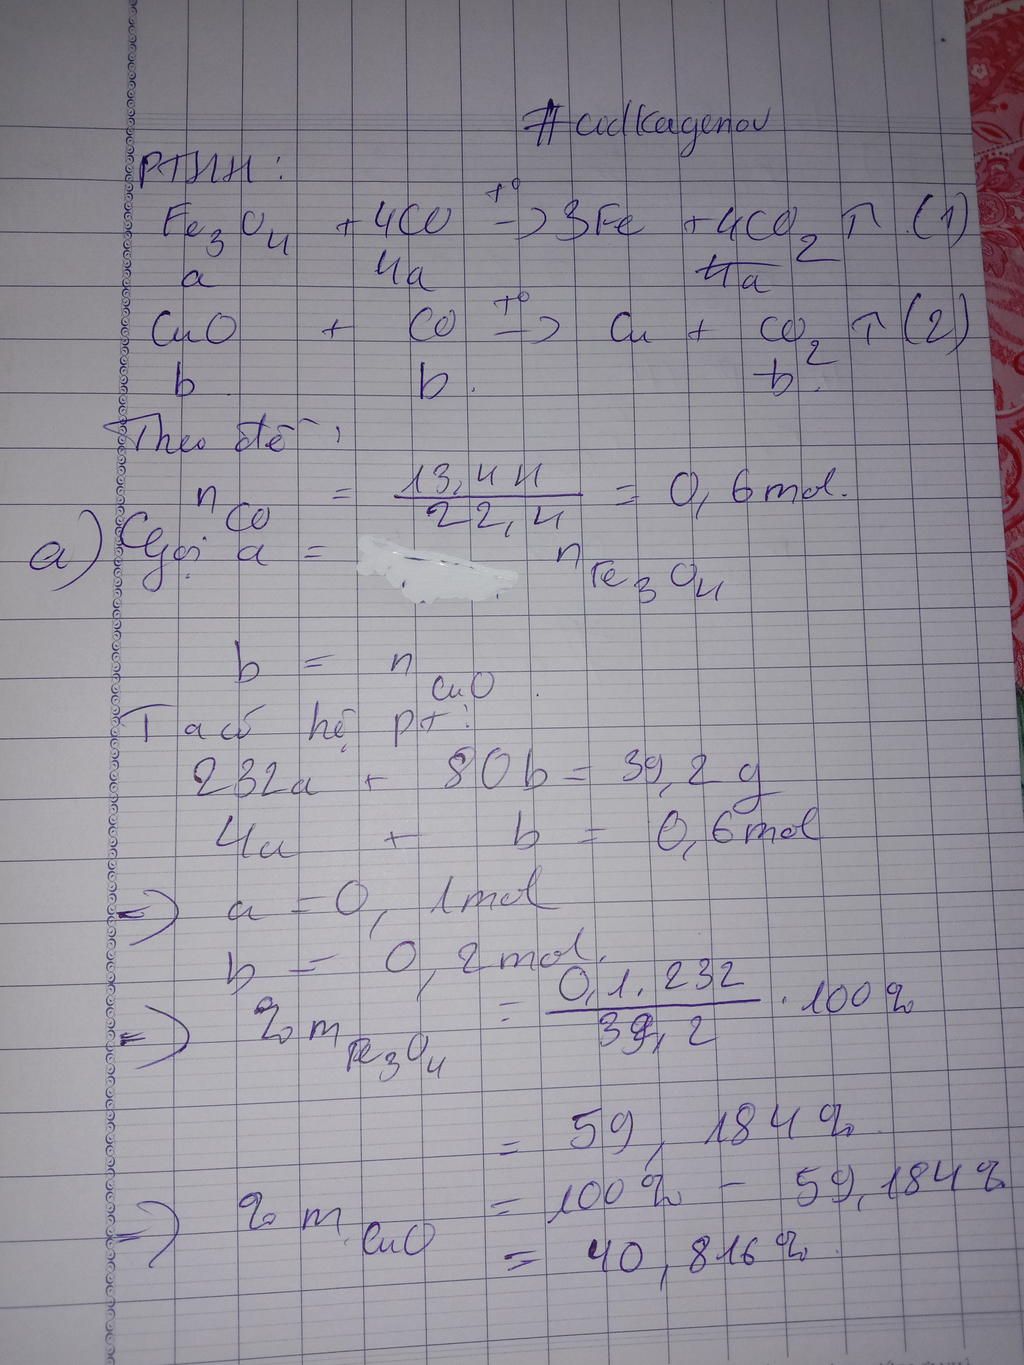 #codkagenou
PTHH:
Fe3O4 + 4CO t° → 3Fe + 4CO2 ↑ (1)
a 4a 4a
CuO + CO t° → Cu + CO2 ↑ (2)
b b. b.
Theo đề:
nCO = 13,44 / 22,4 = 0,6 mol.
a) Gọi a = nFe3O4
b = nCuO.
Ta có hệ pt:
232a + 80b = 39,2 g
4a + b = 0,6 mol
=> a = 0,1 mol
b = 0,2 mol.
=> % mFe3O4 = 0,1.232 / 39,2 . 100%
= 59,184%
=> % mCuO = 100% - 59,184%
= 40,816%